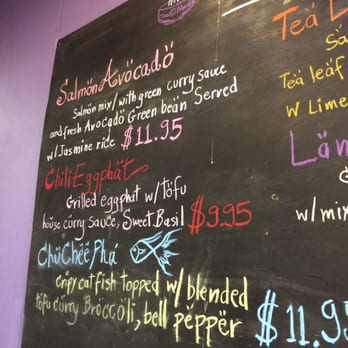 Salmon Avocado
Salmon mix/with green curry sauce
and fresh Avocado Green bean Served
w/Jasmine rice $11.95
Chili Eggphat
Grilled eggphat w/tofu
house curry sauce, Sweet Basil $9.95
Chu Chee Pha
Crispy cat fish Topped w/ blended
tofu curry Broccoli, bell pepper $11.9
Tea L
Sa
Tea leaf
w Lime
Lan
w/mix